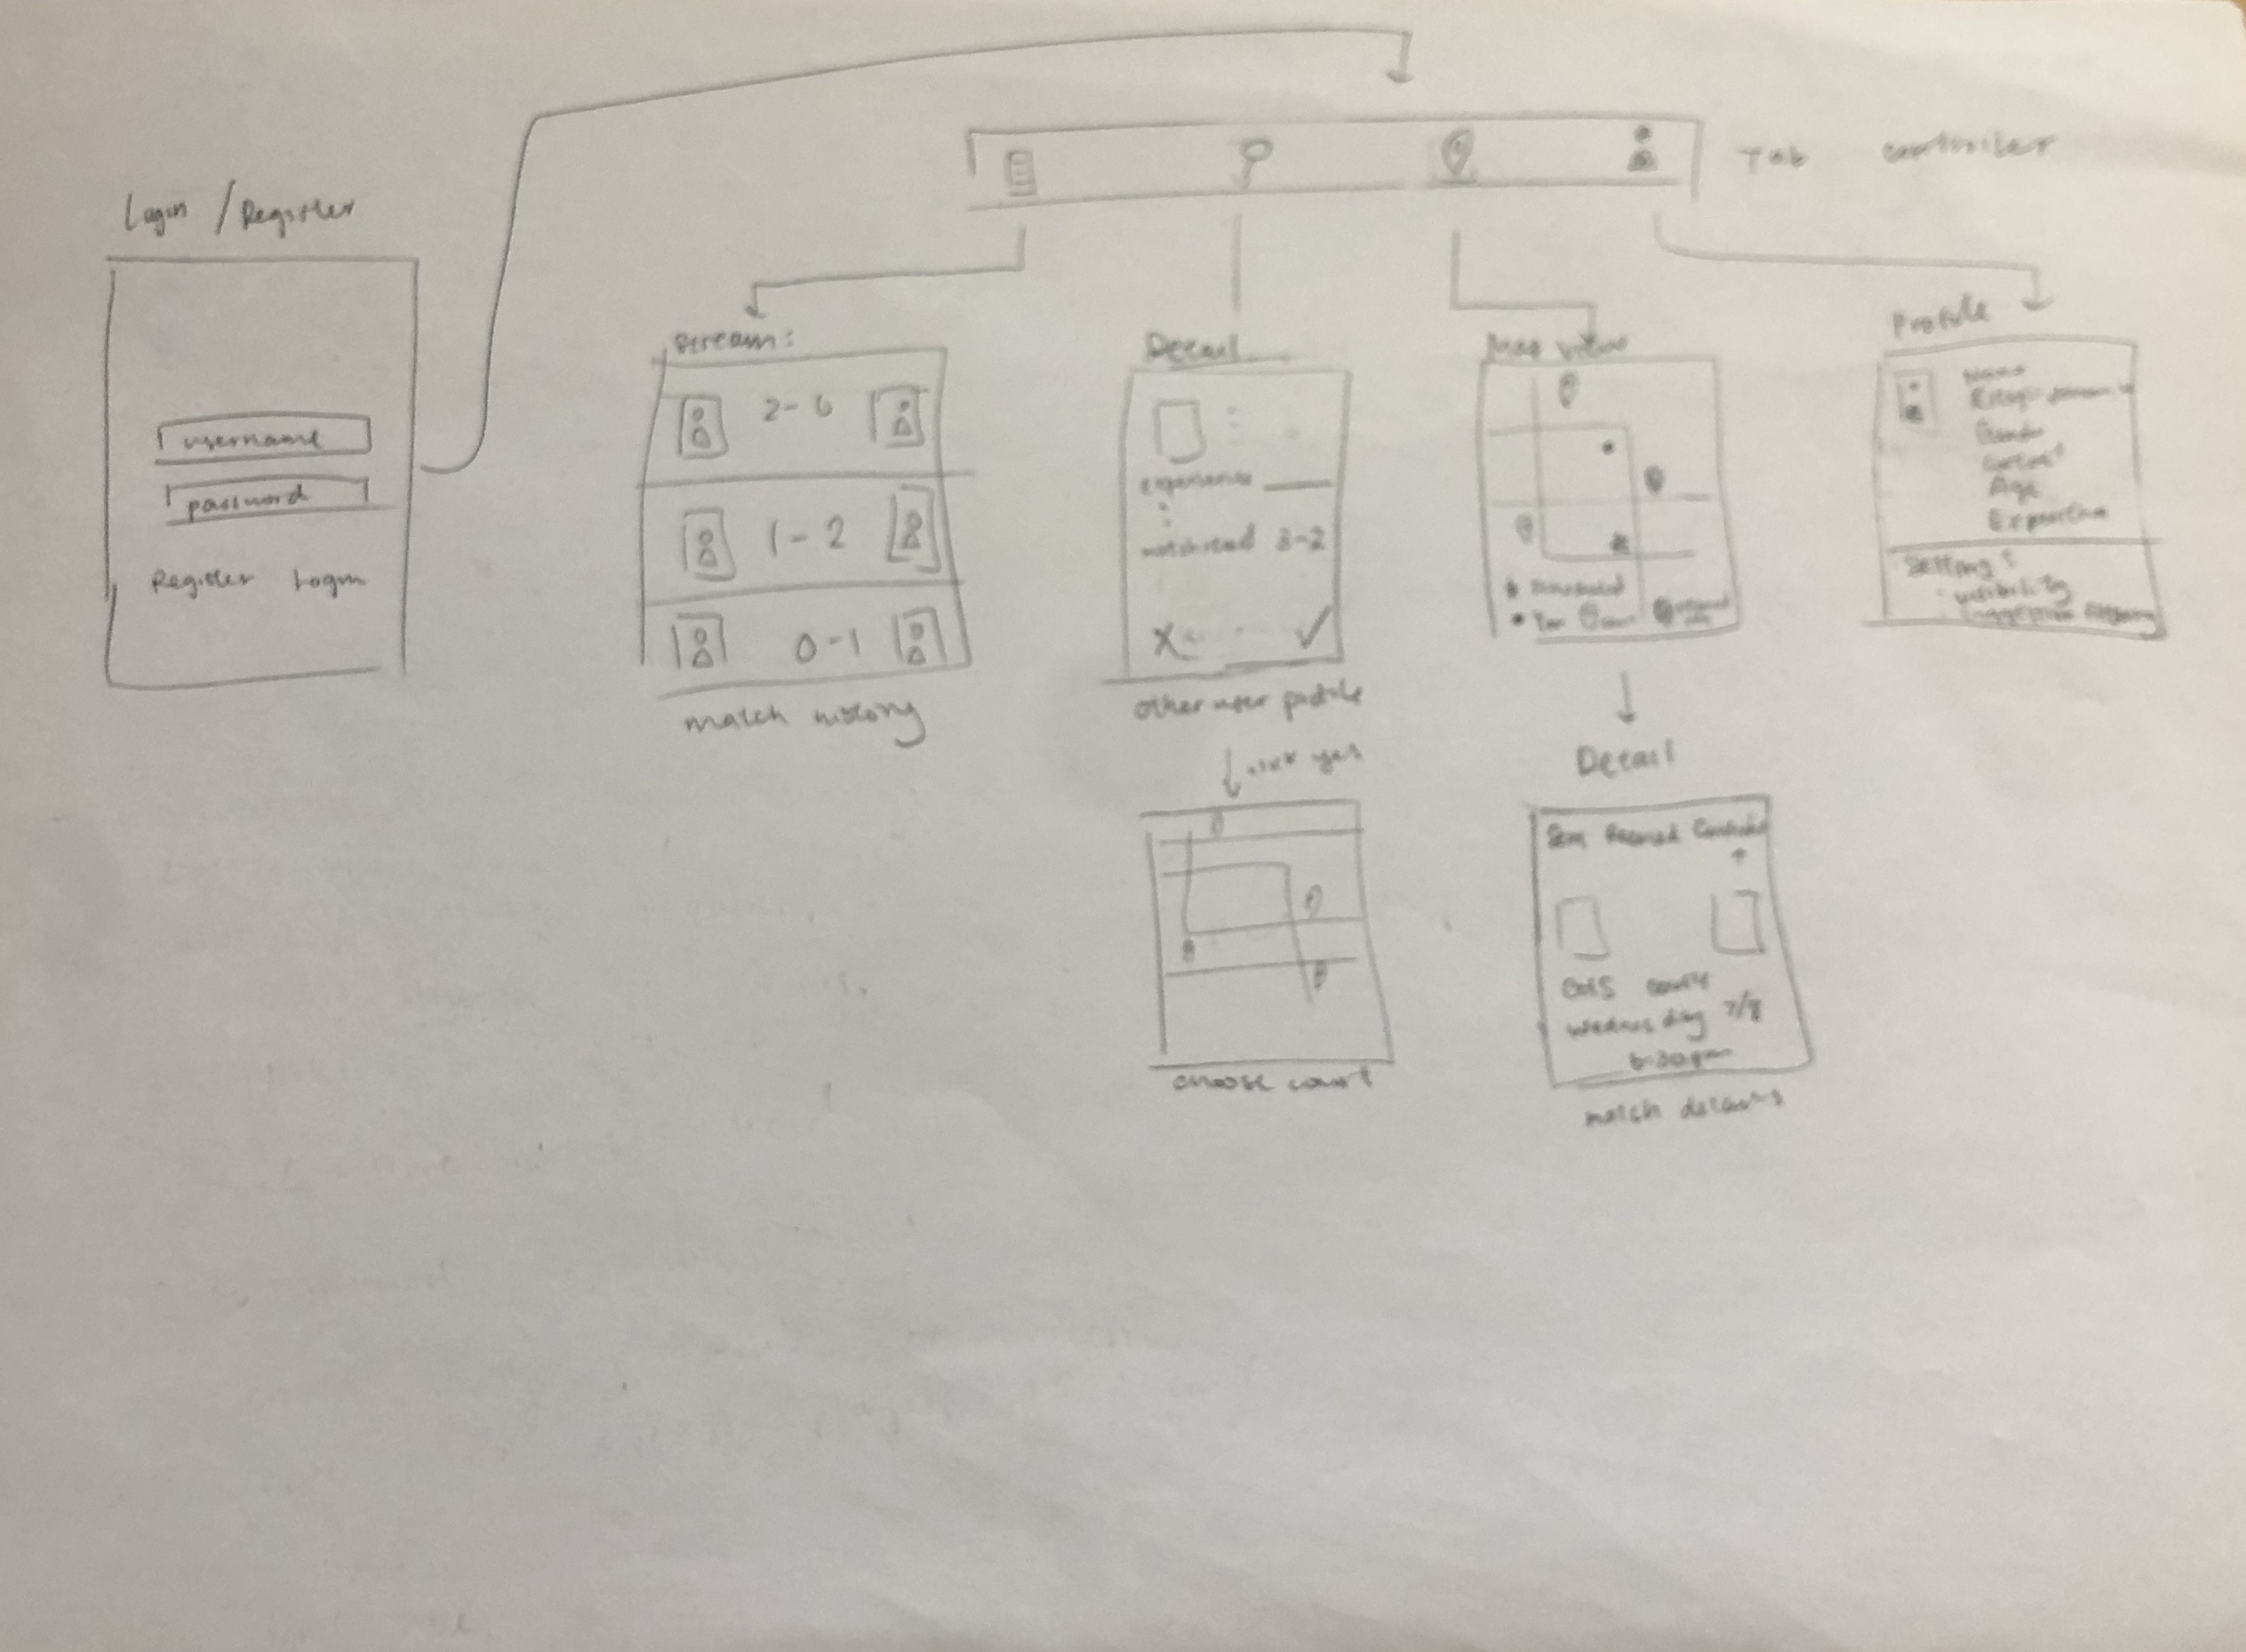 Tab controller
Login / Register
username
password
Register Login
Stream:
2-6
1-2
0-1
match history
Detail
experience
3-2
X
other user profile
click yes
choose court
Map view
You
Detail
Court
Wednesday 7/8
6:30pm
match details
Profile
Name
Gender
Age
Expertise
Setting:
visibility